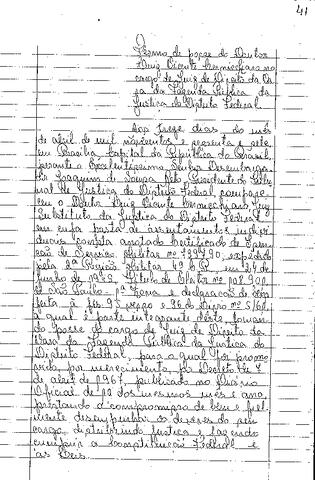 41
Termo de posse do Doutor
Luiz Vicente Cernicchiaro no
cargo de Juiz de Direito da Va
ra da Fazenda Pública da
Justiça do Distrito Federal.
Aos treze dias do mês
de abril de mil novecentos e sessenta e sete
em Brasília, Capital da República do Brasil,
perante o Excelentíssimo Senhor Desembarga
dor Joaquim de Sousa Neto, Presidente do Tribu
nal de Justiça do Distrito Federal, compare
ceu o Doutor Luiz Vicente Cernicchiaro, Juiz
Substituto da Justiça do Distrito Federal,
em cuja pasta de assentamentos indivi
duais consta anotado Certificado de
de Serviço Militar nº expedido
pela 2ª Região Militar em 29 de
junho de Título de Eleitor nº
de São Paulo - 1ª Zona e declaração de bens
feita à fls. 95 verso e 96 do Livro nº
a qual é parte integrante deste, toman
do posse do cargo de Juiz de Direito da
Vara da Fazenda Pública da Justiça do
Distrito Federal, para a qual foi promo
vido, por merecimento, por Decreto de 7
de abril de 1967, publicado no Diário
Oficial de 10 dos mesmos mês e ano,
prestando o compromisso de bem e fiel
mente desempenhar os deveres do seu
cargo, distribuindo justiça e fazendo
cumprir a Constituição Federal e
as Leis.